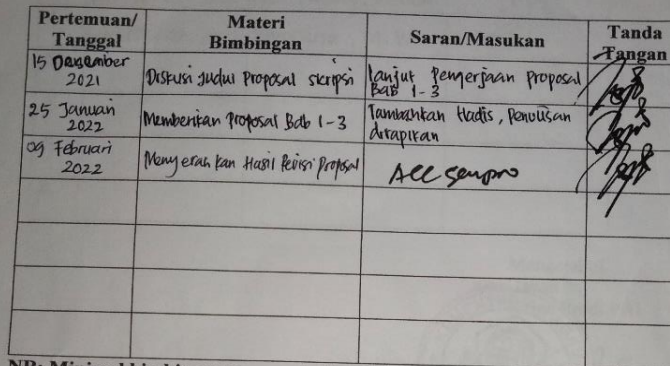 Pertemuan/
Tanggal
Materi
Bimbingan
Saran/Masukan
Tanda
Tangan
15 Desember
2021
Diskusi Judul Proposal skripsi
lanjut Pengerjaan Proposal
Bab 1-3
25 Januari
2022
Memberikan Proposal Bab 1-3
Tambahkan Hadis, Penulisan
dirapikan
09 Februari
2022
Menyerahkan Hasil Revisi Proposal
ACC sempro